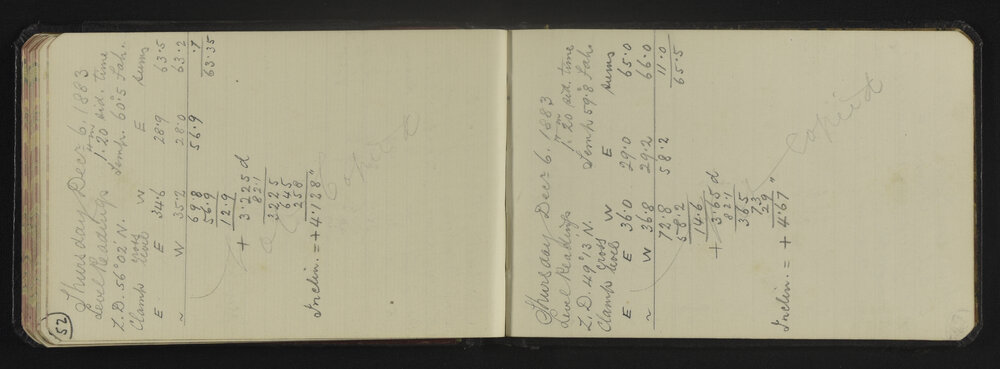 52
Thursday Decr 6. 1883
Level Readings 1h. 20m sid. time
Z.D. 56°02' N. Temp. 60°.5 Fah.
Clamp Cross level E W E sums
E 34.6 28.9 63.5
W 35.2 28.0 63.2
69.8 56.9 .7
56.9 63.35
12.9
+ 3.225 d
821
3225
645
258
Inclin. = + 4.128"
Copied
Thursday Decr 6. 1883
Level Readings 1h. 20m sid. time
Z.D. 49°13 N. Temp 59°.8 Fah.
Clamp Cross levels W E sums
E 36.0 29.0 65.0
W 36.8 29.2 66.0
72.8 58.2 11.0
58.2 65.5
14.6
+ 3.65 d
821
365
73
29
Inclin. = + 4.67"
Copied